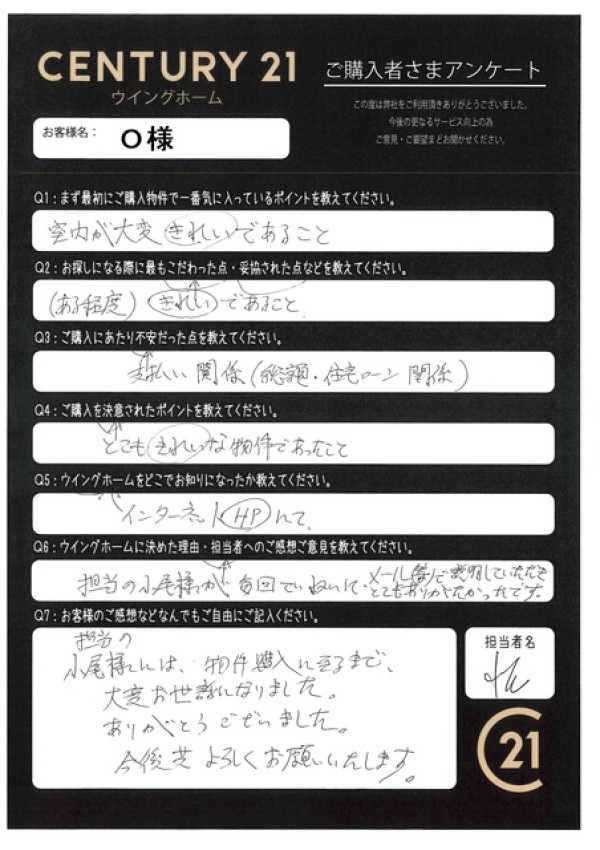 CENTURY 21
ウイングホーム
ご購入者さまアンケート
この度は弊社をご利用頂きありがとうございました。
今後の更なるサービス向上の為
ご意見・ご要望までお聞かせください。
お客様名: O様
Q1:まず最初にご購入物件で一番気に入っているポイントを教えてください。
室内が大変きれいであること
Q2:お探しになる際に最もこだわった点・妥協された点などを教えてください。
(ある程度)きれいであること
Q3:ご購入にあたり不安だった点を教えてください。
支払い関係(総額・住宅ローン関係)
Q4:ご購入を決意されたポイントを教えてください。
とてもきれいな物件であったこと
Q5:ウイングホームをどこでお知りになったか教えてください。
インターネットHPにて、
Q6:ウイングホームに決めた理由・担当者へのご感想ご意見を教えてください。
担当の小尾様が、毎回ていねいに、メール等で説明していただき
とてもありがたかったです。
Q7:お客様のご感想などなんでもご自由にご記入ください。
担当の
小尾様には、物件購入に至るまで、
大変お世話になりました。
ありがとうございました。
今後共よろしくお願いいたします。
担当者名
21